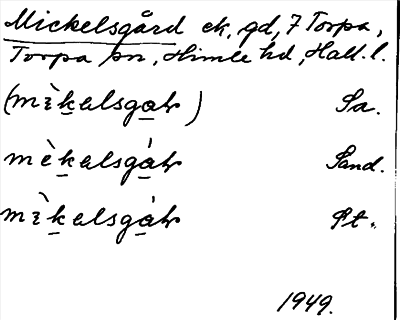 Mickelsgård ek, gd, 7 Torpa,
Torpa sn, Himle hd, Hall. l.
(mὶkalsgaɩ) Sa.
mὲkalsgáɩ Sand.
mὶkalsgáɩ St.
1949.